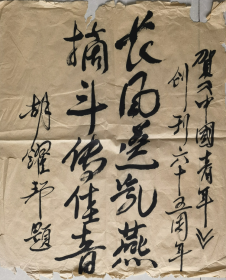 贺《中國青年》
创刊六十五周年
长風送乳燕
摘斗传佳音
胡耀邦題